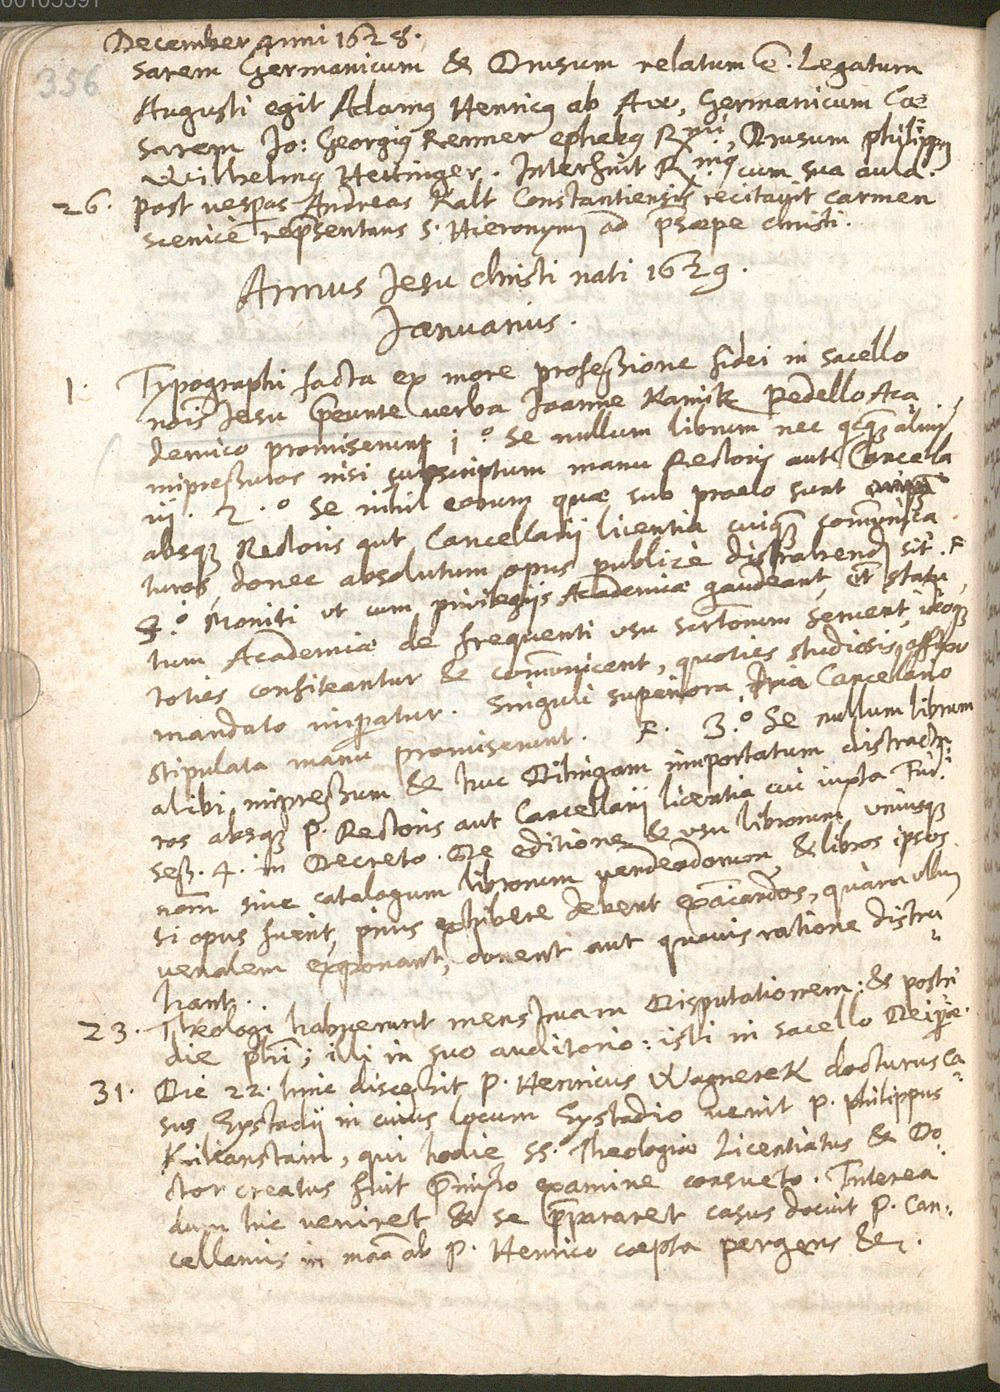 00105391
December anni 1628.
356
sarem Germanicum & Drusum relatum ē. Legatum
Augusti egit Adamq Henricq ab Aw, Germanicum Cae
sarem Jo: Georgiq Renner ephebq Rmi, Drusum philippq
Wilhelmq Hettinger. Interfuit Rmq cum sua aula.
26. post vesperas Andreas Kalt Constantiensis recitavit carmen
scenicè repsentans S. Hieronymū ad psaepe christi.
Annus Jesu christi nati 1629.
Januarius.
1. Typographi facta ex more professione fidei in sacello
nōis Jesu p̄eunte verba Joanne Kamik Pedello Aca
demico promiserunt 1o Se nullum librum nec qcq̄ aliud
impressuros nisi subscriptum manu Rectoris aut Cancella
rij. 2.o Se nihil eorum quae sub praelo sunt
absq Rectoris aut Cancellarij licentia cuiq̄ com̄unica
turos, donec absolutum opus publicè distrahendū sit. F
4.o Moniti ut cum privilegijs Academiae gaudeant, et statu
tum Academiae de frequenti usu sacrorum servent, ideoq
toties confiteantur & com̄unicent, quoties studiosis affixo
mandato imperatur. Singuli superiora Dn̄o Cancellario
stipulata manu promiserunt. F. 3.o Se nullum librum
alibi impressum & huc Dilingam importatum distractu
ros absq P. Rectoris aut Cancellarij licentia cui iuxta Trid.
Sess. 4. in Decreto. De editione & usu librorum, uniusq
nom̄ sive catalogum librorum vendendorum & libros ipsos
si opus fuerit, prius exhibere debent exāinandos, quàm ullum
venalem exponant, donent aut quavis ratione distra
hant.
23. Theologi habuerunt menstruam Disputationem: & postri
die phi; illi in suo auditorio: isti in sacello Deiparae.
31. Die 22. hinc discessit P. Henricus Wagnerek docturus ca
sus Eystadij in cuius locum Eystadio venit P. philippus
Kilianstain, qui hodie SS. Theologiae Licentiatus & Do
ctor creatus fuit p̄misso examine consueto. Interea
dum hic veniret & se p̄pararet casus docuit P. Can-
cellarius in maā ab P. Henrico coepta pergens &c.